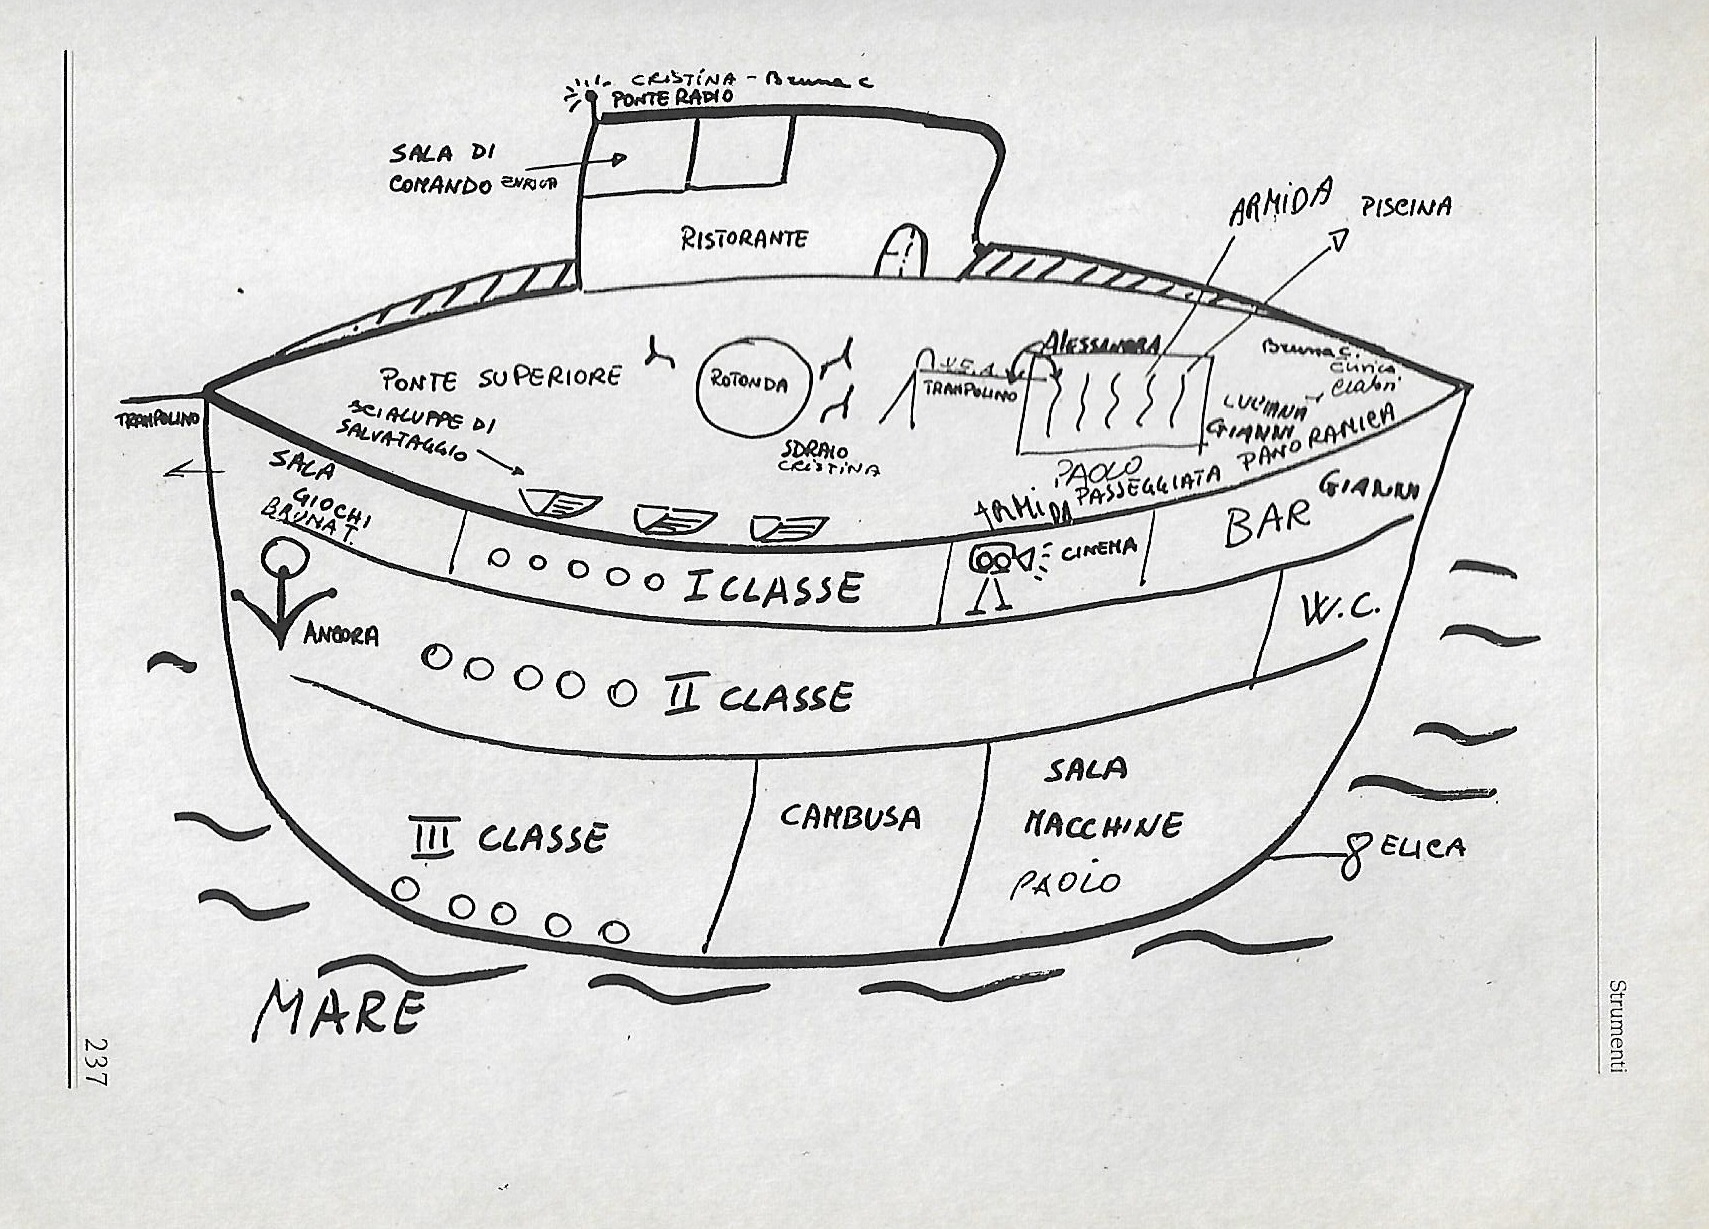 CRISTINA - Bruna C
PONTE RADIO
SALA DI
COMANDO ENRICA
RISTORANTE
ARMIDA
PISCINA
ALESSANDRA
Bruna C.
Enrica
PONTE SUPERIORE
ROTONDA
TRAMPOLINO
TRAMPOLINO
SCIALUPPE DI
SALVATAGGIO
SDRAIO
CRISTINA
LUCIANA
GIANNI
PAOLO
PASSEGGIATA PANORAMICA
ARMIDA
SALA
GIOCHI
BRUNA T.
I CLASSE
CINEMA
BAR
GIANNI
ANCORA
II CLASSE
W.C.
III CLASSE
CAMBUSA
SALA
MACCHINE
PAOLO
ELICA
MARE
Strumenti
237